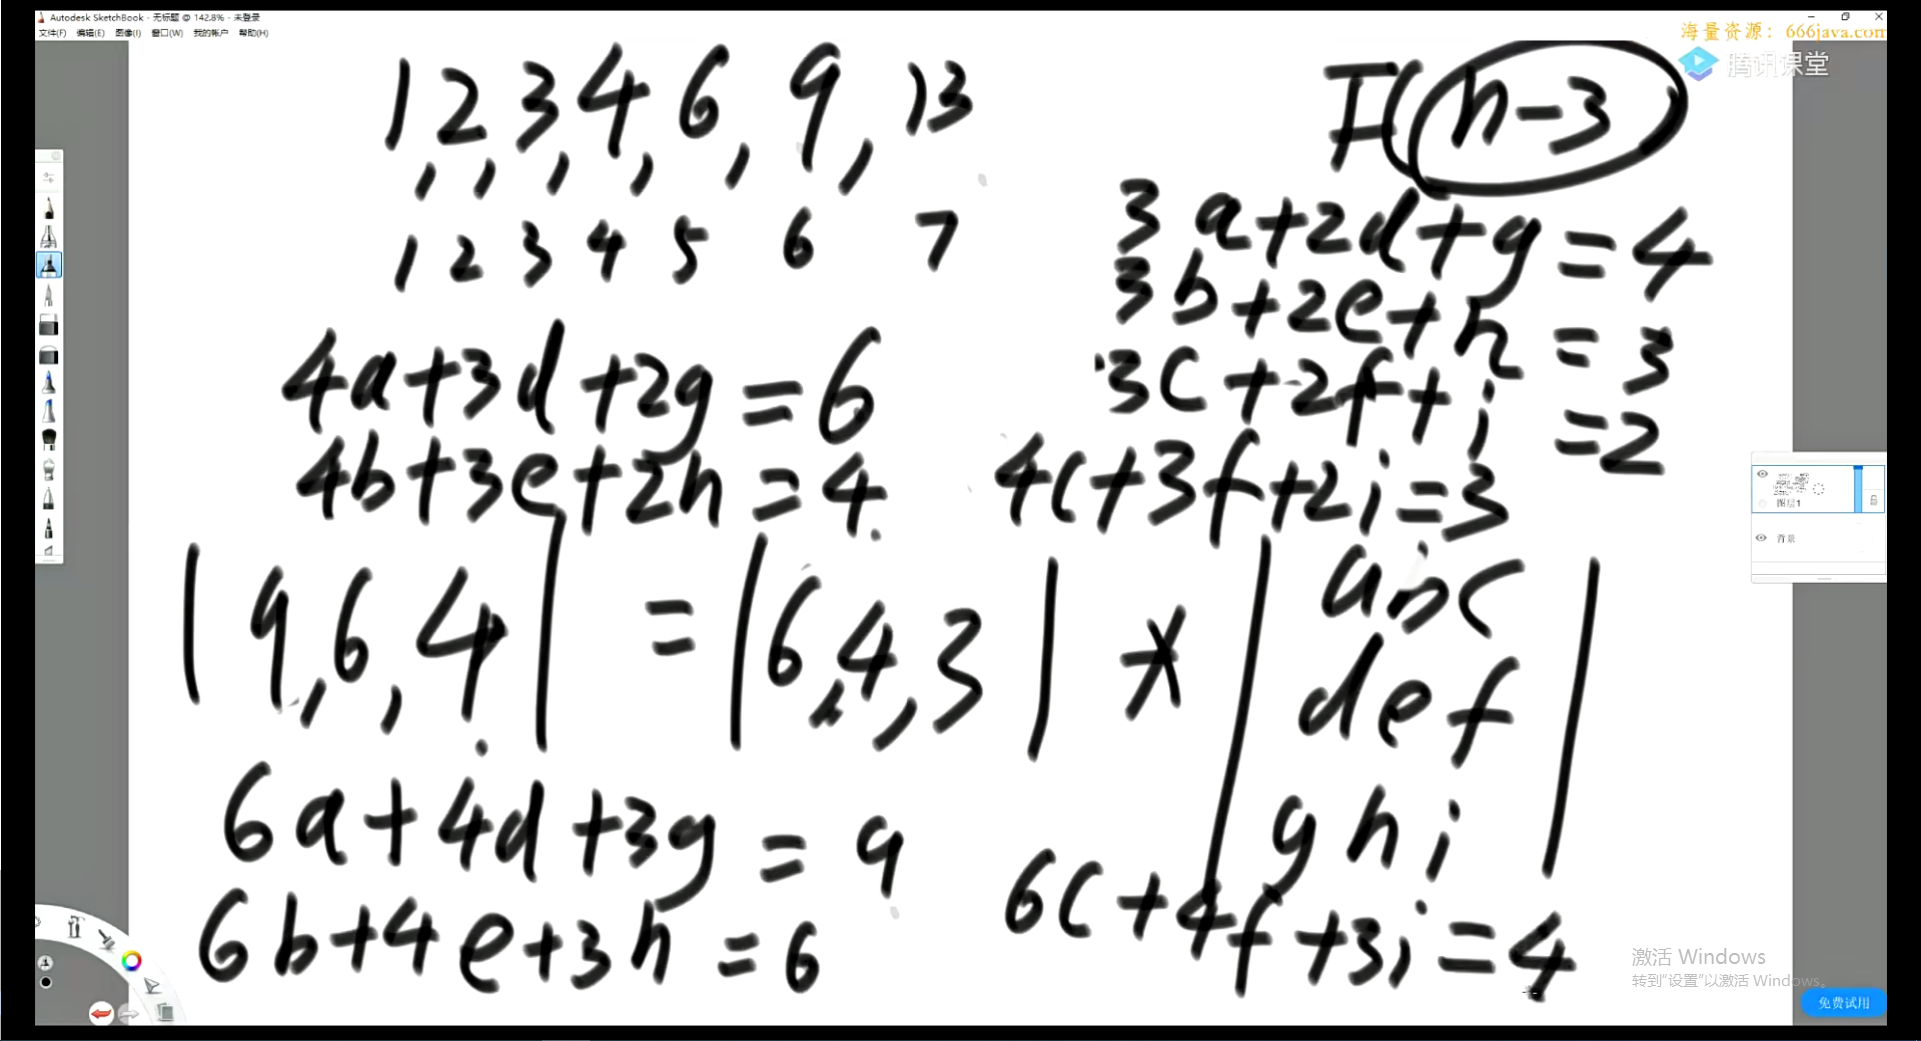 Autodesk SketchBook - 无标题 @ 142.8% - 未登录
文件(F) 编辑(E) 图像(I) 窗口(W) 我的帐户 帮助(H)
海量资源：666java.com
腾讯课堂
1, 2, 3, 4, 6, 9, 13
F(n-3)
1 2 3 4 5 6 7
3a+2d+g=4
3b+2e+h=3
3c+2f+i=2
4a+3d+2g=6
4b+3e+2h=4
4c+3f+2i=3
图层1
背景
|9,6,4| = |6,4,3| * |a b c
d e f
g h i|
6a+4d+3g=9
6b+4e+3h=6
6c+4f+3i=4
激活 Windows
转到"设置"以激活 Windows。
免费试用